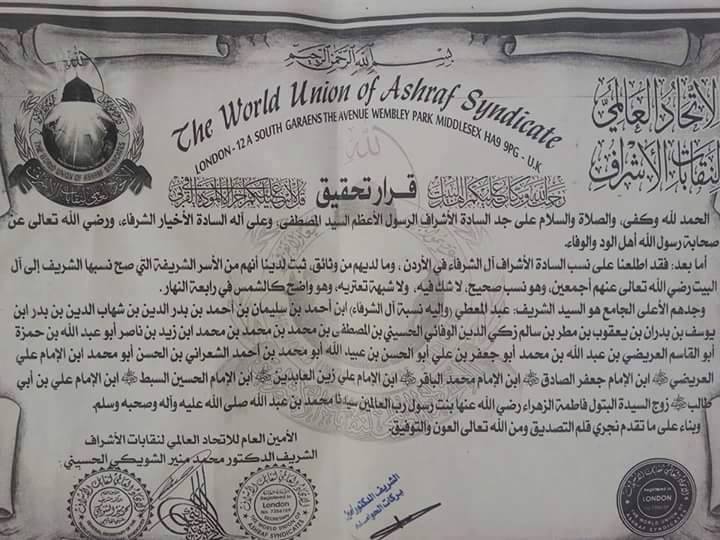 بسم الله الرحمن الرحيم
The World Union of Ashraf Syndicate
LONDON - 12 A SOUTH GARAENS THE AVENUE WEMBLEY PARK MIDDLESEX HA9 9PG - U.K
الاتحاد العالمي
لنقابات الأشراف
THE WORLD UNION OF ASHRAF SYNDICATES
رحمة الله وبركاته عليكم أهل البيت
قرار تحقيق
قل لا أسألكم عليه أجرا إلا المودة في القربى
الحمد لله وكفى، والصلاة والسلام على جد السادة الأشراف الرسول الأعظم السيد المصطفى، وعلى آله السادة الأخيار الشرفاء، ورضي الله تعالى عن
صحابة رسول الله أهل الود والوفاء.
أما بعد: فقد اطلعنا على نسب السادة الأشراف آل الشرفاء في الأردن ، وما لديهم من وثائق، ثبت لدينا أنهم من الأسر الشريفة التي صح نسبها الشريف إلى آل
البيت رضي الله تعالى عنهم أجمعين، وهو نسب صحيح، لا شك فيه، ولا شبهة تعتريه، وهو واضح كالشمس في رابعة النهار.
وجدهم الأعلى الجامع هو السيد الشريف: عبد المعطي (واليه نسبة آل الشرفاء) ابن أحمد بن سليمان بن أحمد بن بدر الدين بن شهاب الدين بن بدر ابن
يوسف بن بدران بن يعقوب بن مطر بن سالم زكي الدين الوفائي الحسيني بن المصطفى بن محمد بن محمد بن محمد ابن زيد بن ناصر أبو عبد الله بن حمزة
أبو القاسم العريضي بن عبد الله بن محمد أبو جعفر بن علي أبو الحسن بن عبيد الله أبو محمد بن أحمد الشعراني بن الحسن أبو محمد ابن الإمام علي
العريضي ابن الإمام جعفر الصادق ابن الإمام محمد الباقر ابن الإمام علي زين العابدين ابن الإمام الحسين السبط ابن الإمام علي بن أبي
طالب زوج السيدة البتول فاطمة الزهراء رضي الله عنها بنت رسول رب العالمين سيدنا محمد بن عبد الله صلى الله عليه وآله وصحبه وسلم.
وبناء على ما تقدم نجري قلم التصديق ومن الله تعالى العون والتوفيق.
الأمين العام للاتحاد العالمي لنقابات الأشراف
الشريف الدكتور محمد منير الشويكي الحسيني
Registered in
LONDON
WORLD UNION OF
ASHRAF SYNDICATES
الشريف الدكتور
بركات
Registered in
LONDON
THE WORLD UNION OF
ASHRAF SYNDICATES